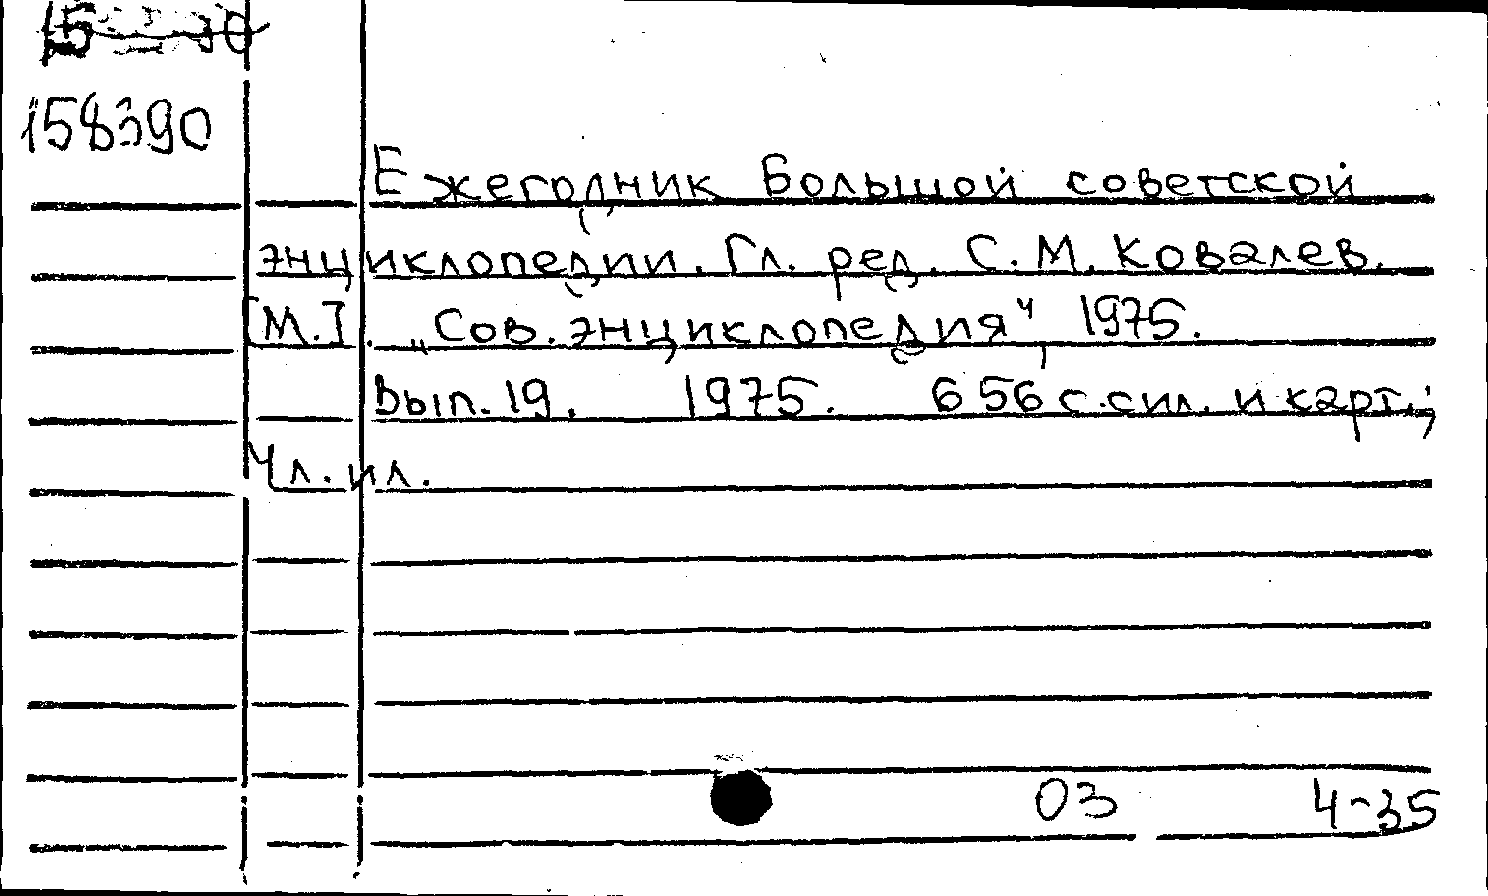 158390
Ежегодник Большой советской
энциклопедии. Гл. ред. С. М. Ковалев.
[М.]. „Сов. энциклопедия“, 1975.
Вып. 19. 1975. 656 с. с ил. и карт.;
4 л. ил.
03 4-35